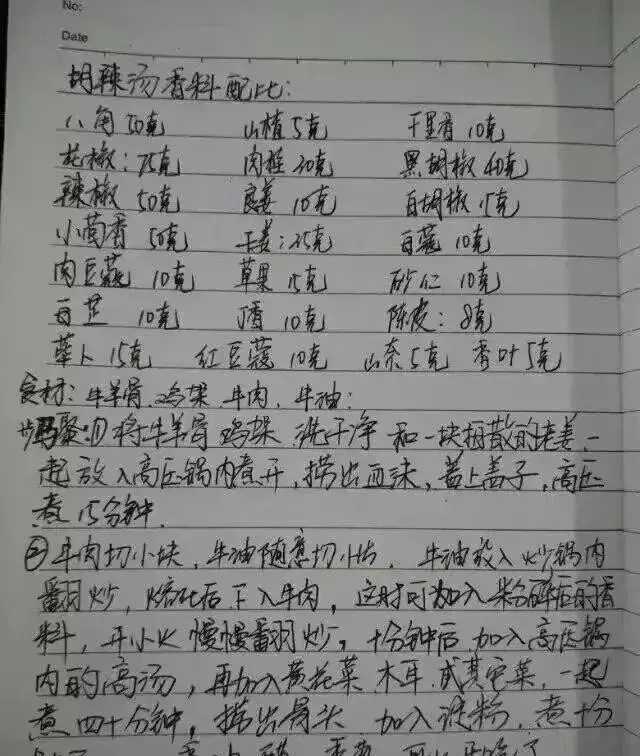 No:
Date
胡辣汤香料配比:
八角 50克 山楂 5克 千里香 10克
花椒: 75克 肉桂 20克 黑胡椒 40克
辣椒 50克 良姜 10克 白胡椒 15克
小茴香 50克 干姜: 25克 白蔻 10克
肉豆蔻 10克 草果 15克 砂仁 10克
白芷 10克 丁香 10克 陈皮: 8克
荜卜 15克 红豆蔻 10克 山奈 5克 香叶 5克
食材: 牛羊骨、鸡架、牛肉、牛油:
步骤: ① 将牛羊骨 鸡架 洗干净 和一块拍散的老姜一
起放入高压锅内煮开, 捞出血沫, 盖上盖子, 高压
煮 15分钟.
② 牛肉切小块, 牛油随意切小块, 牛油放入炒锅内
翻炒, 熔化后下入牛肉, 这时可加入粉碎后的香
料, 开小火慢慢翻炒, 十分钟后 加入高压锅
内的高汤, 再加入黄花菜 木耳 或其它菜, 一起
煮四十分钟, 捞出骨头 加入淀粉, 煮十分